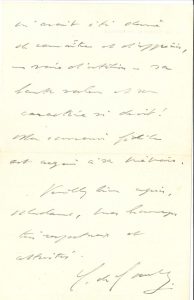 m'avait été donné
de connaître et d'apprécier,
sa
haute valeur et son
caractère si droit!
Mon souvenir fidèle
est acquis à sa mémoire.
Veuillez bien agréer,
Madame, mes hommages
très respectueux et
attristés.